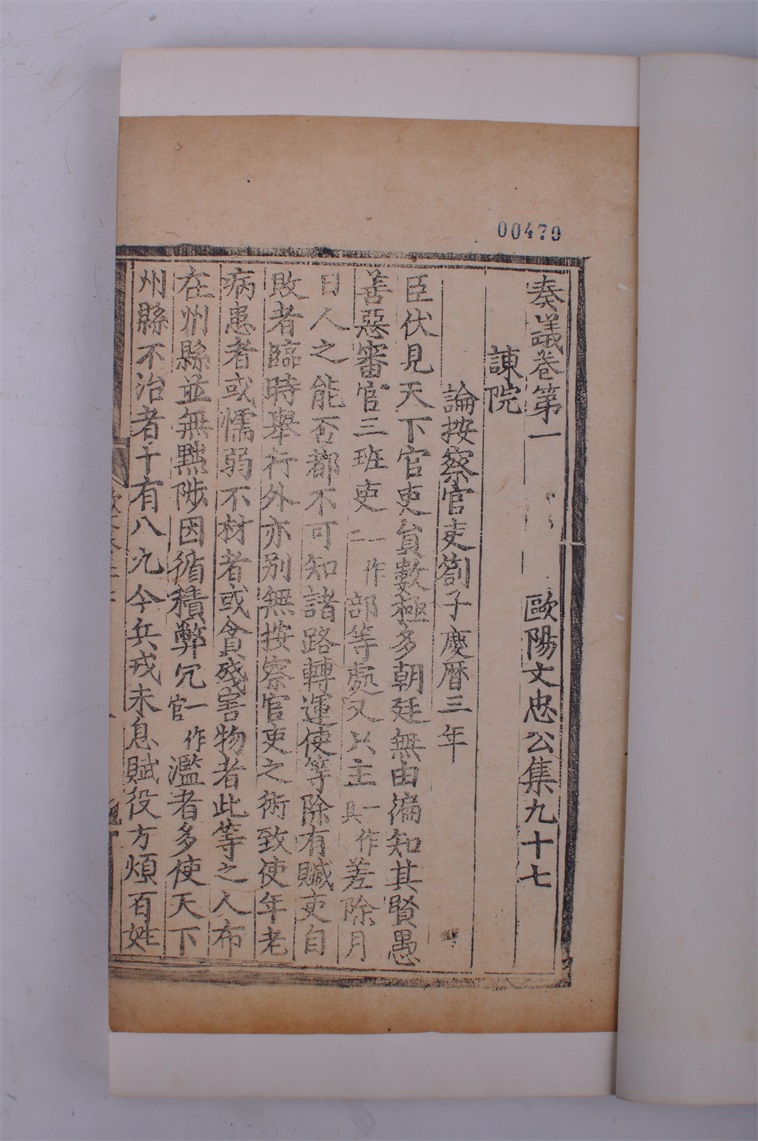 00479
奏議卷第一 歐陽文忠公集九十七
諫院
論按察官吏劄子慶曆三年
臣伏見天下官吏貟數極多朝廷無由徧知其賢愚
善惡審官三班吏一作部等處又只主一作具差除月
日人之能否都不可知諸路轉運使等除有贓吏自
敗者臨時舉行外亦別無按察官吏之術致使年老
病患者或懦弱不材者或貪殘害物者此等之人布
在州縣並無黜陟因循積弊冗一作官濫者多使天下
州縣不治者十有八九今兵戎未息賦役方煩百姓